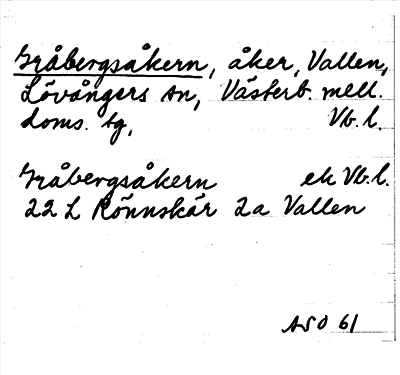 Gråbergsåkern, åker, Vallen,
Lövångers sn, Västerb. mell.
doms. tg, Vb.l.
Gråbergsåkern ek Vb.l.
22 L Rönnskär 2a Vallen
ASO 61